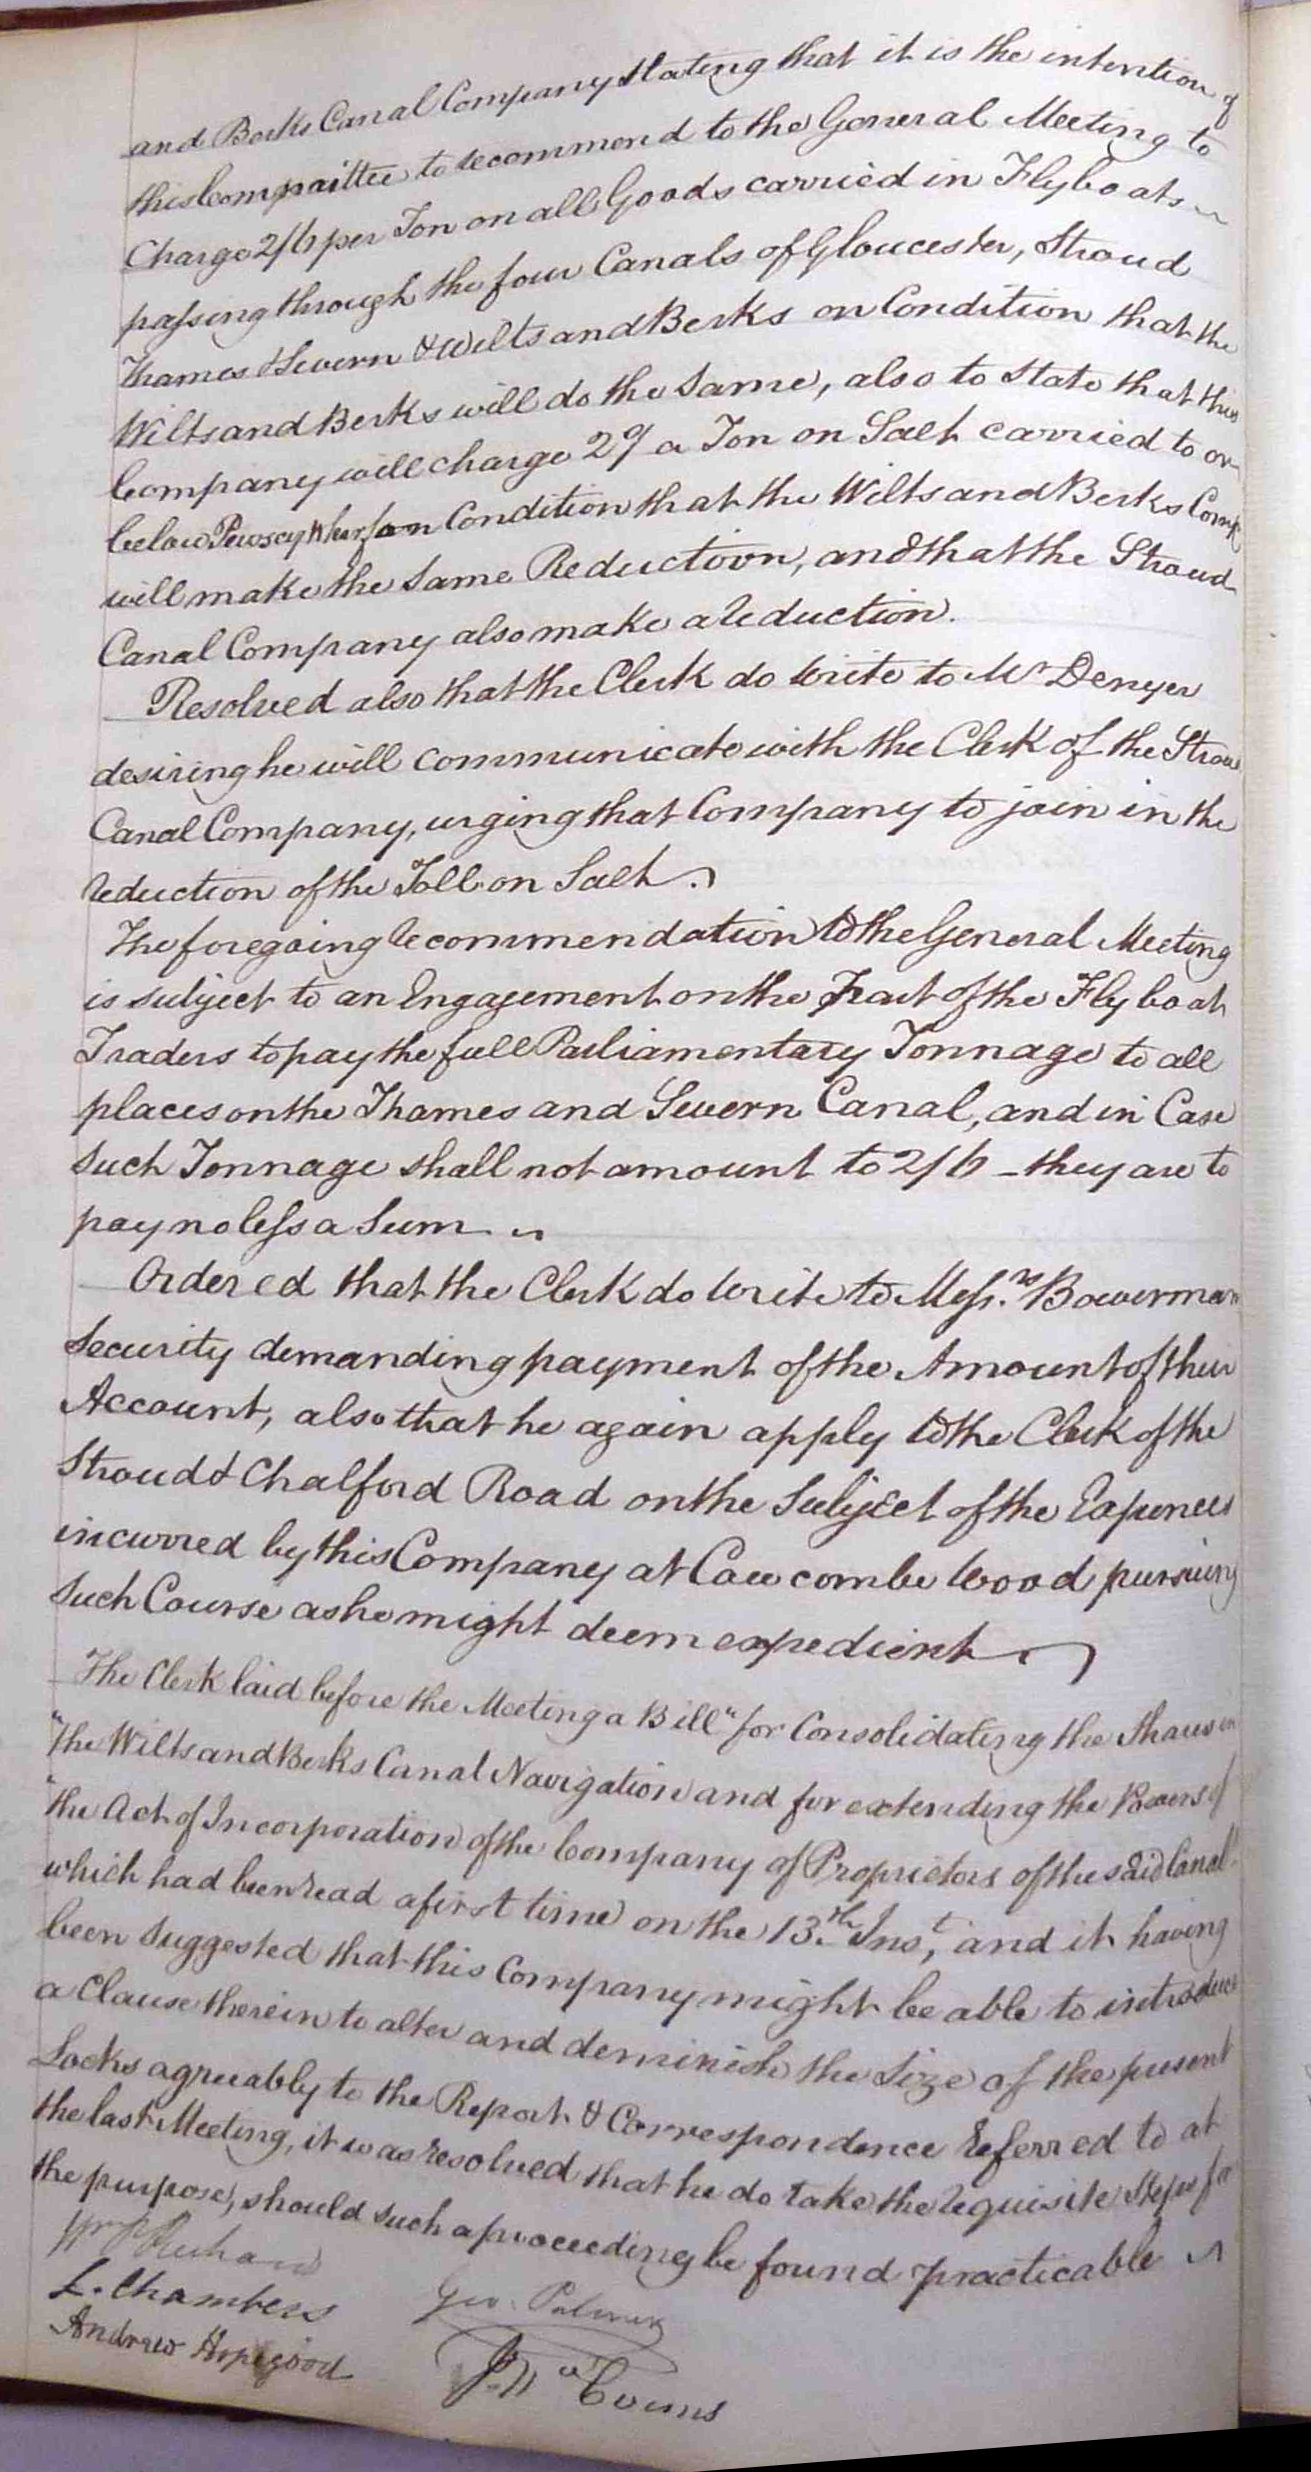 and Berks Canal Company stating that it is the intention of
this Committee to recommend to the General Meeting to
Charge 2/6 per Ton on all Goods carried in Flyboats
passing through the four Canals of Gloucester, Stroud
Thames & Severn & Wilts and Berks on Condition that the
Wilts and Berks will do the same, also to state that this
Company will charge 2/ a Ton on Salt carried to or
below Pewsey Wharf on Condition that the Wilts and Berks Comp
will make the same Reduction, and that the Stroud
Canal Company also make a reduction.
Resolved also that the Clerk do write to Mr Denyer
desiring he will communicate with the Clerk of the Stroud
Canal Company, urging that Company to join in the
reduction of the Toll on Salt.
The foregoing recommendation to the General Meeting
is subject to an Engagement on the Part of the Fly boat
Traders to pay the full Parliamentary Tonnage to all
places on the Thames and Severn Canal, and in Case
such Tonnage shall not amount to 2/6 - they are to
pay no less a Sum
Ordered that the Clerk do write to Messrs Bowerman
Security demanding payment of the Amount of their
Account, also that he again apply to the Clerk of the
Stroud & Chalford Road on the Subject of the Expences
incurred by this Company at Cowcombe Wood pursuing
such Course as he might deem expedient
The Clerk laid before the Meeting a Bill "for Consolidating the Shares in
"the Wilts and Berks Canal Navigation and for extending the Powers of
"the Act of Incorporation of the Company of Proprietors of the said Canal"
which had been read a first time on the 13th Inst, and it having
been suggested that this Company might be able to introduce
a Clause therein to alter and deminish the Size of the present
Locks agreeably to the Report & Correspondence referred to at
the last Meeting, it was resolved that he do take the requisite Steps for
the purpose, should such a proceeding be found practicable
L. Chambers Geo. Palmer
Andrew Hopegood Evans